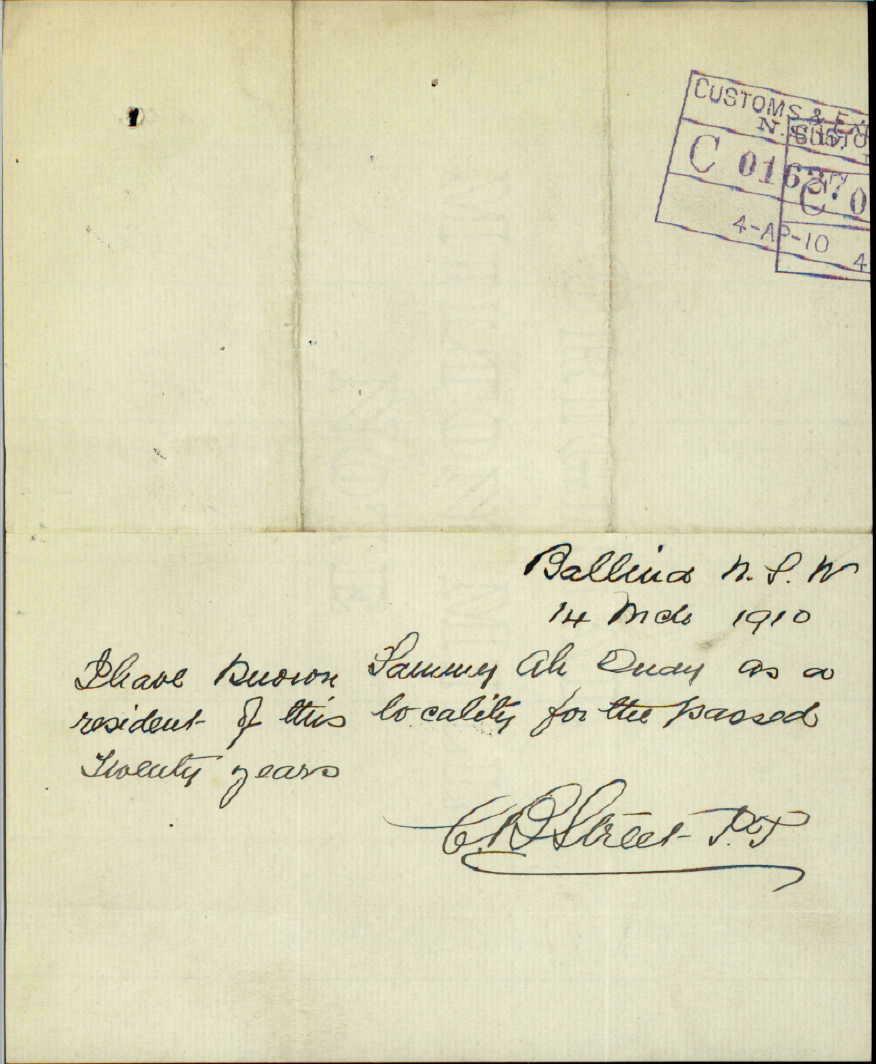 CUSTOMS & EX
N.S.W.
C 01637
4-AP-10
CUSTO
C 0
4
Ballina N.S.W
14 Mch 1910
I have Known Sammy Ah as a
resident of this locality for the passed
Twenty years
C.B Street P.J